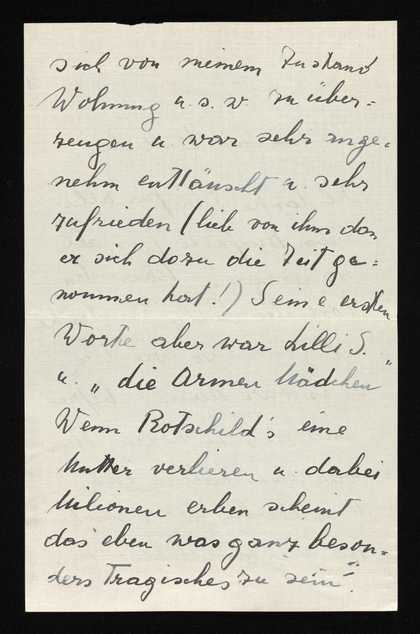 sich von meinem Zustand
Wohnung u. s. w. zu über=
zeugen u. war sehr ange=
nehm enttäuscht u. sehr
zufrieden (lieb von ihm das
er sich dazu die Zeit ge=
nommen hat!) Seine ersten
Worte aber war Lilli S.
u. „die Armen Mädchen"
Wenn Rotschild's eine
Mutter verlieren u. dabei
Milionen erben scheint
das eben was ganz beson=
ders Tragisches zu sein".